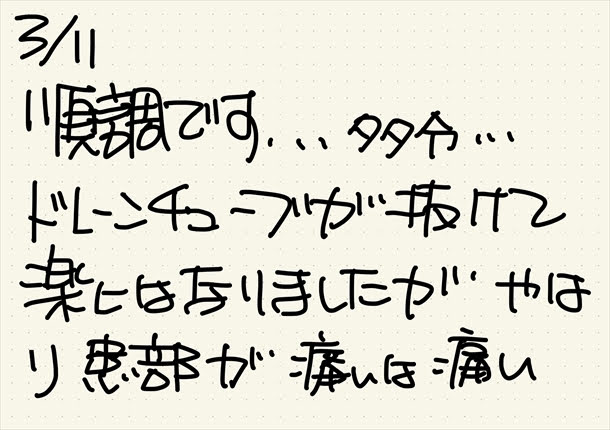 3/11
順調です...多分...
ドレーンチューブが抜けて
楽にはなりましたが やは
り患部が痛いは痛い